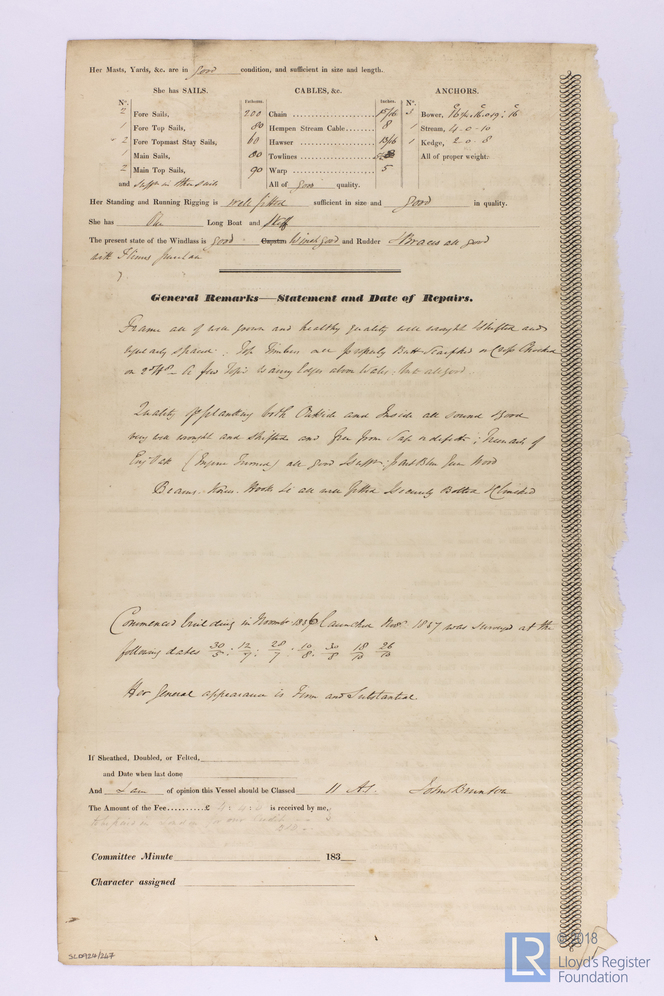 Her Masts, Yards, &c. are in good condition, and sufficient in size and length.
She has SAILS. CABLES, &c. ANCHORS.
No. Fathoms. Inches. No.
2 Fore Sails, 200 Chain 15/16 3 Bower,
1 Fore Top Sails, 80 Hempen Stream Cable 8 1 Stream, 4.0.10
2 Fore Topmast Stay Sails, 60 Hawser 13/16 1 Kedge, 2.0.8
1 Main Sails, 80 Towlines All of proper weight.
2 Main Top Sails, 90 Warp 5
and other sails All of good quality.
Her Standing and Running Rigging is well fitted sufficient in size and good in quality.
She has One Long Boat and Skiff
The present state of the Windlass is good Capstan Winch good and Rudder Braces all good
with
General Remarks—Statement and Date of Repairs.
Frame all of well grown and healthy quality well wrought shifted and
regularly spaced. Top Timbers properly Butt Scarfed or Cross Chocked
on A few Top's waney edges above Wales: but all good
Quality of planking both Outside and Inside all sound & good
very well wrought and shifted and free from Sap or defects;
Eng Oak all good
Beams. Knees. Hooks &c all well fitted securely Bolted & Clinched
Commenced building in Novembr 1836 launched Novr 1837 was surveyed at the
following dates 30/5 : 12/7 : 28/7 : 10/8 : 30/8 18/10 26/10
Her general appearance is Firm and Substantial
If Sheathed, Doubled, or Felted,
and Date when last done
And I am of opinion this Vessel should be Classed 11 A1. John Brunton
The Amount of the Fee..........£ 4:4:0 is received by me,
Committee Minute 183
Character assigned
SLD924/247
LR
© 2018
Lloyd's Register
Foundation